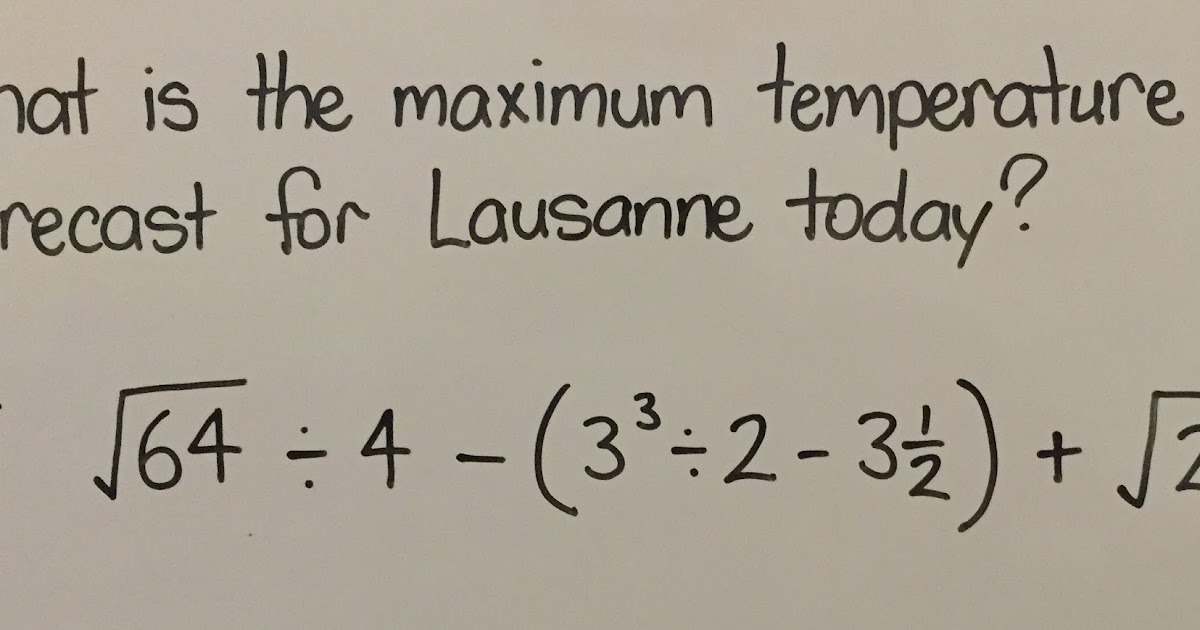 hat is the maximum temperature
recast for Lausanne today?
√64 ÷ 4 - (3³ ÷ 2 - 3½) + √2